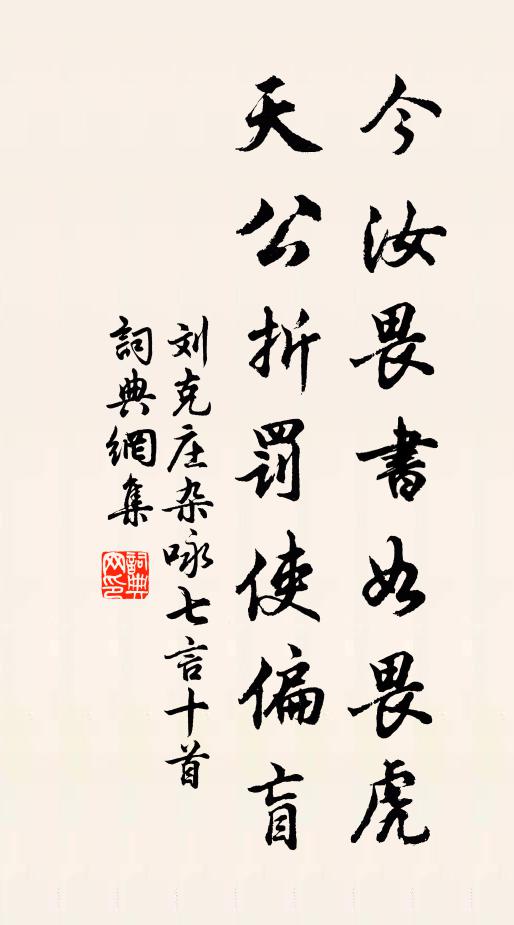 今汝畏書如畏虎
天公折罰使偏盲
刘克庄杂咏七言十首
詞典網集
詞典網印